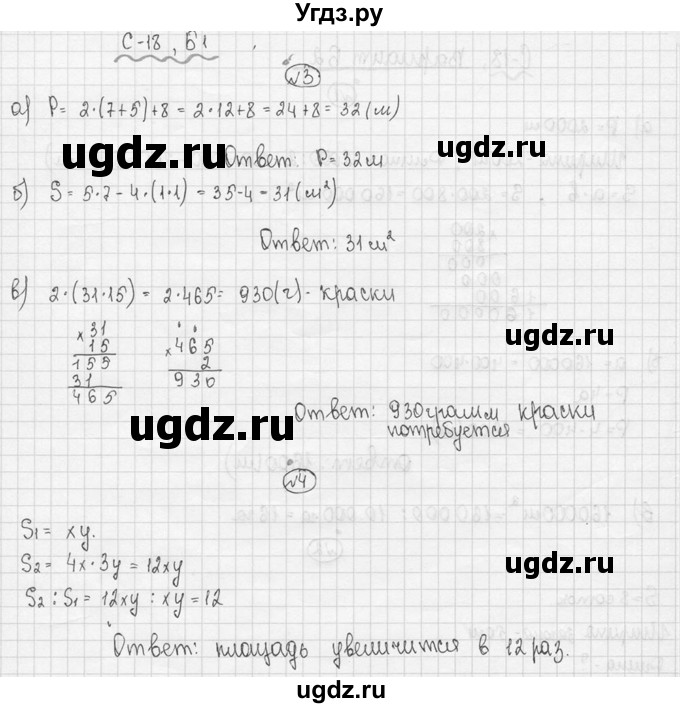 Угдз.ру
С-18, Б1
№3
а) P = 2·(7+5)+8 = 2·12+8 = 24+8 = 32(м)
ugdz.ru ugdz.ru
Ответ: P = 32м
б) S = 5·7 - 4·(1·1) = 35-4 = 31(м²)
Ответ: 31м²
в) 2·(31·15) = 2·465 = 930(г) - краски
×31
15
155
31
465
×465
2
930
ugdz.ru ugdz.ru
Ответ: 930 грамм краски
потребуется
№4
S1 = xy.
S2 = 4x·3y = 12xy
S2 : S1 = 12xy : xy = 12
ugdz.ru ugdz.ru
Ответ: площадь увеличится в 12 раз.
ugdz.ru